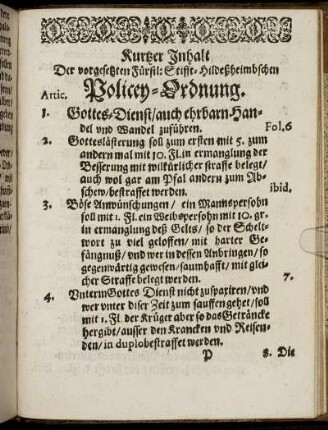 Kurtzer Inhalt
Der vorgesetzten Fürstl: Stifft-Hildeßheimbschen
Artic. Policey-Ordnung.
1. Gottes-Dienst/auch ehrbarn Han-
del vnd Wandel zuführen. Fol.6
2. Gotteslästerung soll zum ersten mit 5. zum
andern mal mit 10. Fl. in ermanglung der
Besserung mit wilkürlicher straffe belegt/
auch wol gar am Pfal andern zum Ab-
schew/bestraffet werden. ibid.
3. Böse Anwünschungen/ ein Mannspersohn
soll mit 1. Fl. ein Weibspersohn mit 10. gr.
in ermanglung deß Gelts/ so der Schelt-
wort zu viel geloffen/ mit harter Ge-
fängnuß/ vnd wer in dessen Anbringen/ so
gegenwärtig gewesen/ saumhafft/ mit glei-
cher Straffe belegt werden. 7.
4. Vnterm Gottes Dienst nicht zuspatziren/ vnd
wer vnter diser Zeit zum sauffen gehet/ soll
mit 1. Fl. der Krüger aber so das Geträncke
hergibt/ ausser den Krancken vnd Reisen-
den/ in duplo bestraffet werden.
P 8. Die